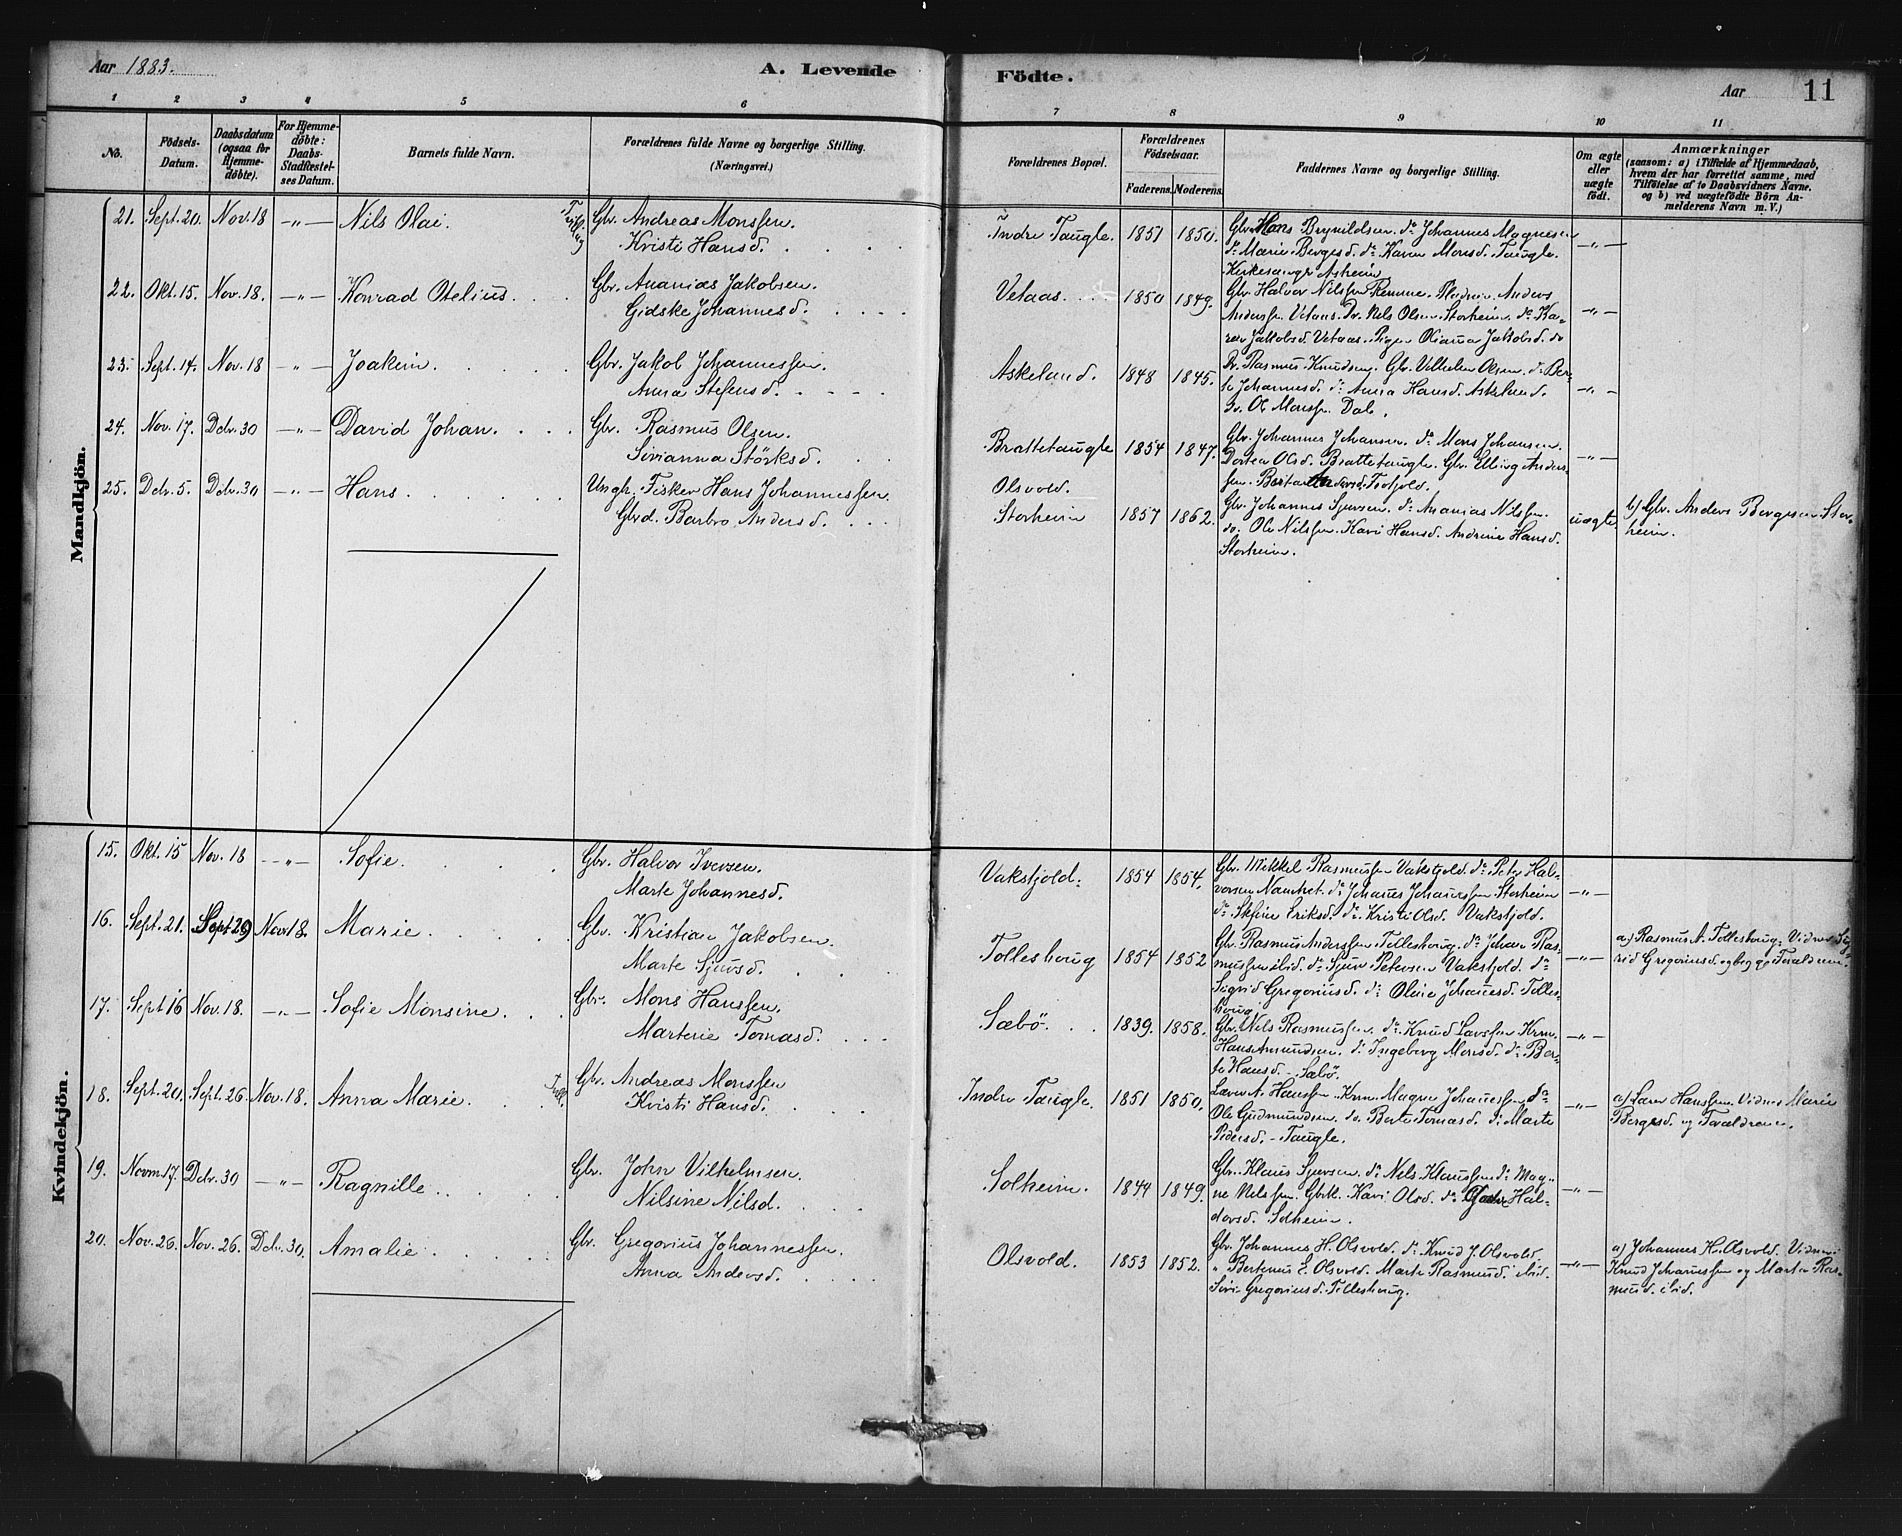 Aar 1883.
A. Levende Födte.
Aar 11
1 2 3 4 5 6 7 8 9 10 11
No.
Födsels-
Datum.
Daabsdatum
(ogsaa for
Hjemme-
döbte).
For Hjemme-
döbte:
Daabs-
Stadfæstel-
ses Datum.
Barnets fulde Navn.
Forældrenes fulde Navne og borgerlige Stilling.
(Næringsvei.)
Forældrenes Bopæl.
Forældrenes
Födselsaar.
Faderens. Moderens.
Faddernes Navne og borgerlige Stilling.
Om ægte
eller
uægte
födt.
Anmærkninger
(saasom: a) i Tilfælde af Hjemmedaab,
hvem der har forrettet samme, med
Tilföielse af to Daabsvidners Navne,
og b) ved uægtefödte Börn An-
melderens Navn m. V.)
Mandkjön.
21. Sept. 20. Nov. 18 -"- Nils Olai. Gbr. Andreas Monssen.
Kristi Hansd.
Indre Taugle. 1851 1850.
Gbr. Hans Brynildsen. do Johannes Magnesen
do Marie Bergesd. do Karen Monsd. Taugle.
Kirkesanger Asheim -"-
22. Okt. 15. Nov. 18. -"- Konrad Otelius. Gbr. Ananias Jakobsen.
Gidske Johannesd.
Vetaas. 1850 1849.
Gbr. Halvor Nilssen Anders
Anderss. Vetaas. Dr. Nels Olsen Storheim. do Ka-
ren Jakobsd. Vetaas. Pige Oliana Jakobsd. do -"-
23. Sept. 14. Nov. 18 -"- Joakim. Gbr. Jakob Johannessen.
Anna Stefensd.
Askeland. 1848 1845.
Dr. Rasmus Knudsen. Gbr. Vilhelm Olsen. do Ber-
te Johannesd. do Anna Hansd. Askeland.
Ol Monssen Dale. -"-
24. Nov. 17. Dcbr. 30 -"- David Johan. Gbr. Rasmus Olsen.
Sivianna Störksd.
Brattetaugle 1854 1847.
Gbr. Johannes Johansen. do Mons Johansen.
Dortea Olsd. Brattetaugle. Gbr. Elling Anders-
sen. Berta Andersd. -"-
25. Dcbr. 5. Dcbr. 30 -"- Hans. Ungk. Fisker Hans Johannessen
Gbrd. Barbro Andersd.
Olsvold.
Storheim 1857 1862.
Gbr. Johannes Sjursen. do Ananias Nilssen.
do Ole Nilssen. Kari Hansd. Andrine Hansd.
Storheim.
uægte
b) Gbr. Anders Bergesen Stor-
heim.
Kvindekjön.
15. Okt. 15 Nov. 18 -"- Sofie. Gbr. Halvor Iversen.
Marte Johannesd.
Vakstjold. 1854 1854.
Gbr. Mikkel Rasmussen Vakstjold. do Peter Hal-
vorsen Namtvet. do Johannes Johannessen Storheim
do Eriksd. do Kristi Olsd. Vakstjold. -"-
16. Sept. 21. Sept 29 Nov. 18. Marie. Gbr. Kristian Jakobsen.
Marte Sjursd.
Tollesboug 1854 1852
Gbr. Rasmus Anderssen Tollesboug. do Johan Ras-
mussen ibid. do Sjur Petersen Vakstjold. do
Sigrid Gregoriusd. do Oline Johannesd. Tolles-
boug. -"-
a) Rasmus A. Tollesboug. Vidner Sig-
rid Gregoriusd. og begge Forældrene.
17. Sept 16 Nov. 18. -"- Sofie Monsine. Gbr. Mons Hanssen.
Marterie Tomasd.
Sæbö. 1839. 1858.
Gbr. Nels Rasmussen. do Knud Larssen Krm.
Hans Amundsen. do Ingeborg Monsd. do Ber-
te Hansd. Sæbö. -"-
18. Sept. 20. Sept. 26. Nov. 18. Anna Marie. Gbr. Andreas Monssen
Kristi Hansd.
Indre Taugle. 1851 1850.
Lærer A. Hanssen. Krm. Magne Johannessen do
Ole Gudmundsen. do Berte Tomasd. do Marte
Pedersd. Taugle. -"-
a) Lærer Hanssen. Vidner Marie
Bergesd. og Forældrene.
19. Novm. 17. Dcbr. 30 -"- Ragnille. Gbr. John Vilhelmsen
Nilsine Nilsd.
Solheim. 1844 1849.
Gbr. Klaus Sjursen. do Nels Klaussen do Mag-
ne Nilssen. Gbrk. Kari Olsd. do Hal-
dorsd. Solheim. -"-
20. Nov. 26. Nov. 26. Dcbr. 30. Amalie. Gbr. Gregorius Johannessen.
Anna Andersd.
Olsvold. 1853 1852.
Gbr. Johannes H. Olsvold. do Knud J. Olsvold.
" Bertinus E. Olsvold. Marte Rasmusd. ibid.
Siri Gregoriusd. Tollesboug. -"-
a) Johannes H. Olsvold. Vidner
Knud Johannessen og Marte Ras-
musd. ibid.